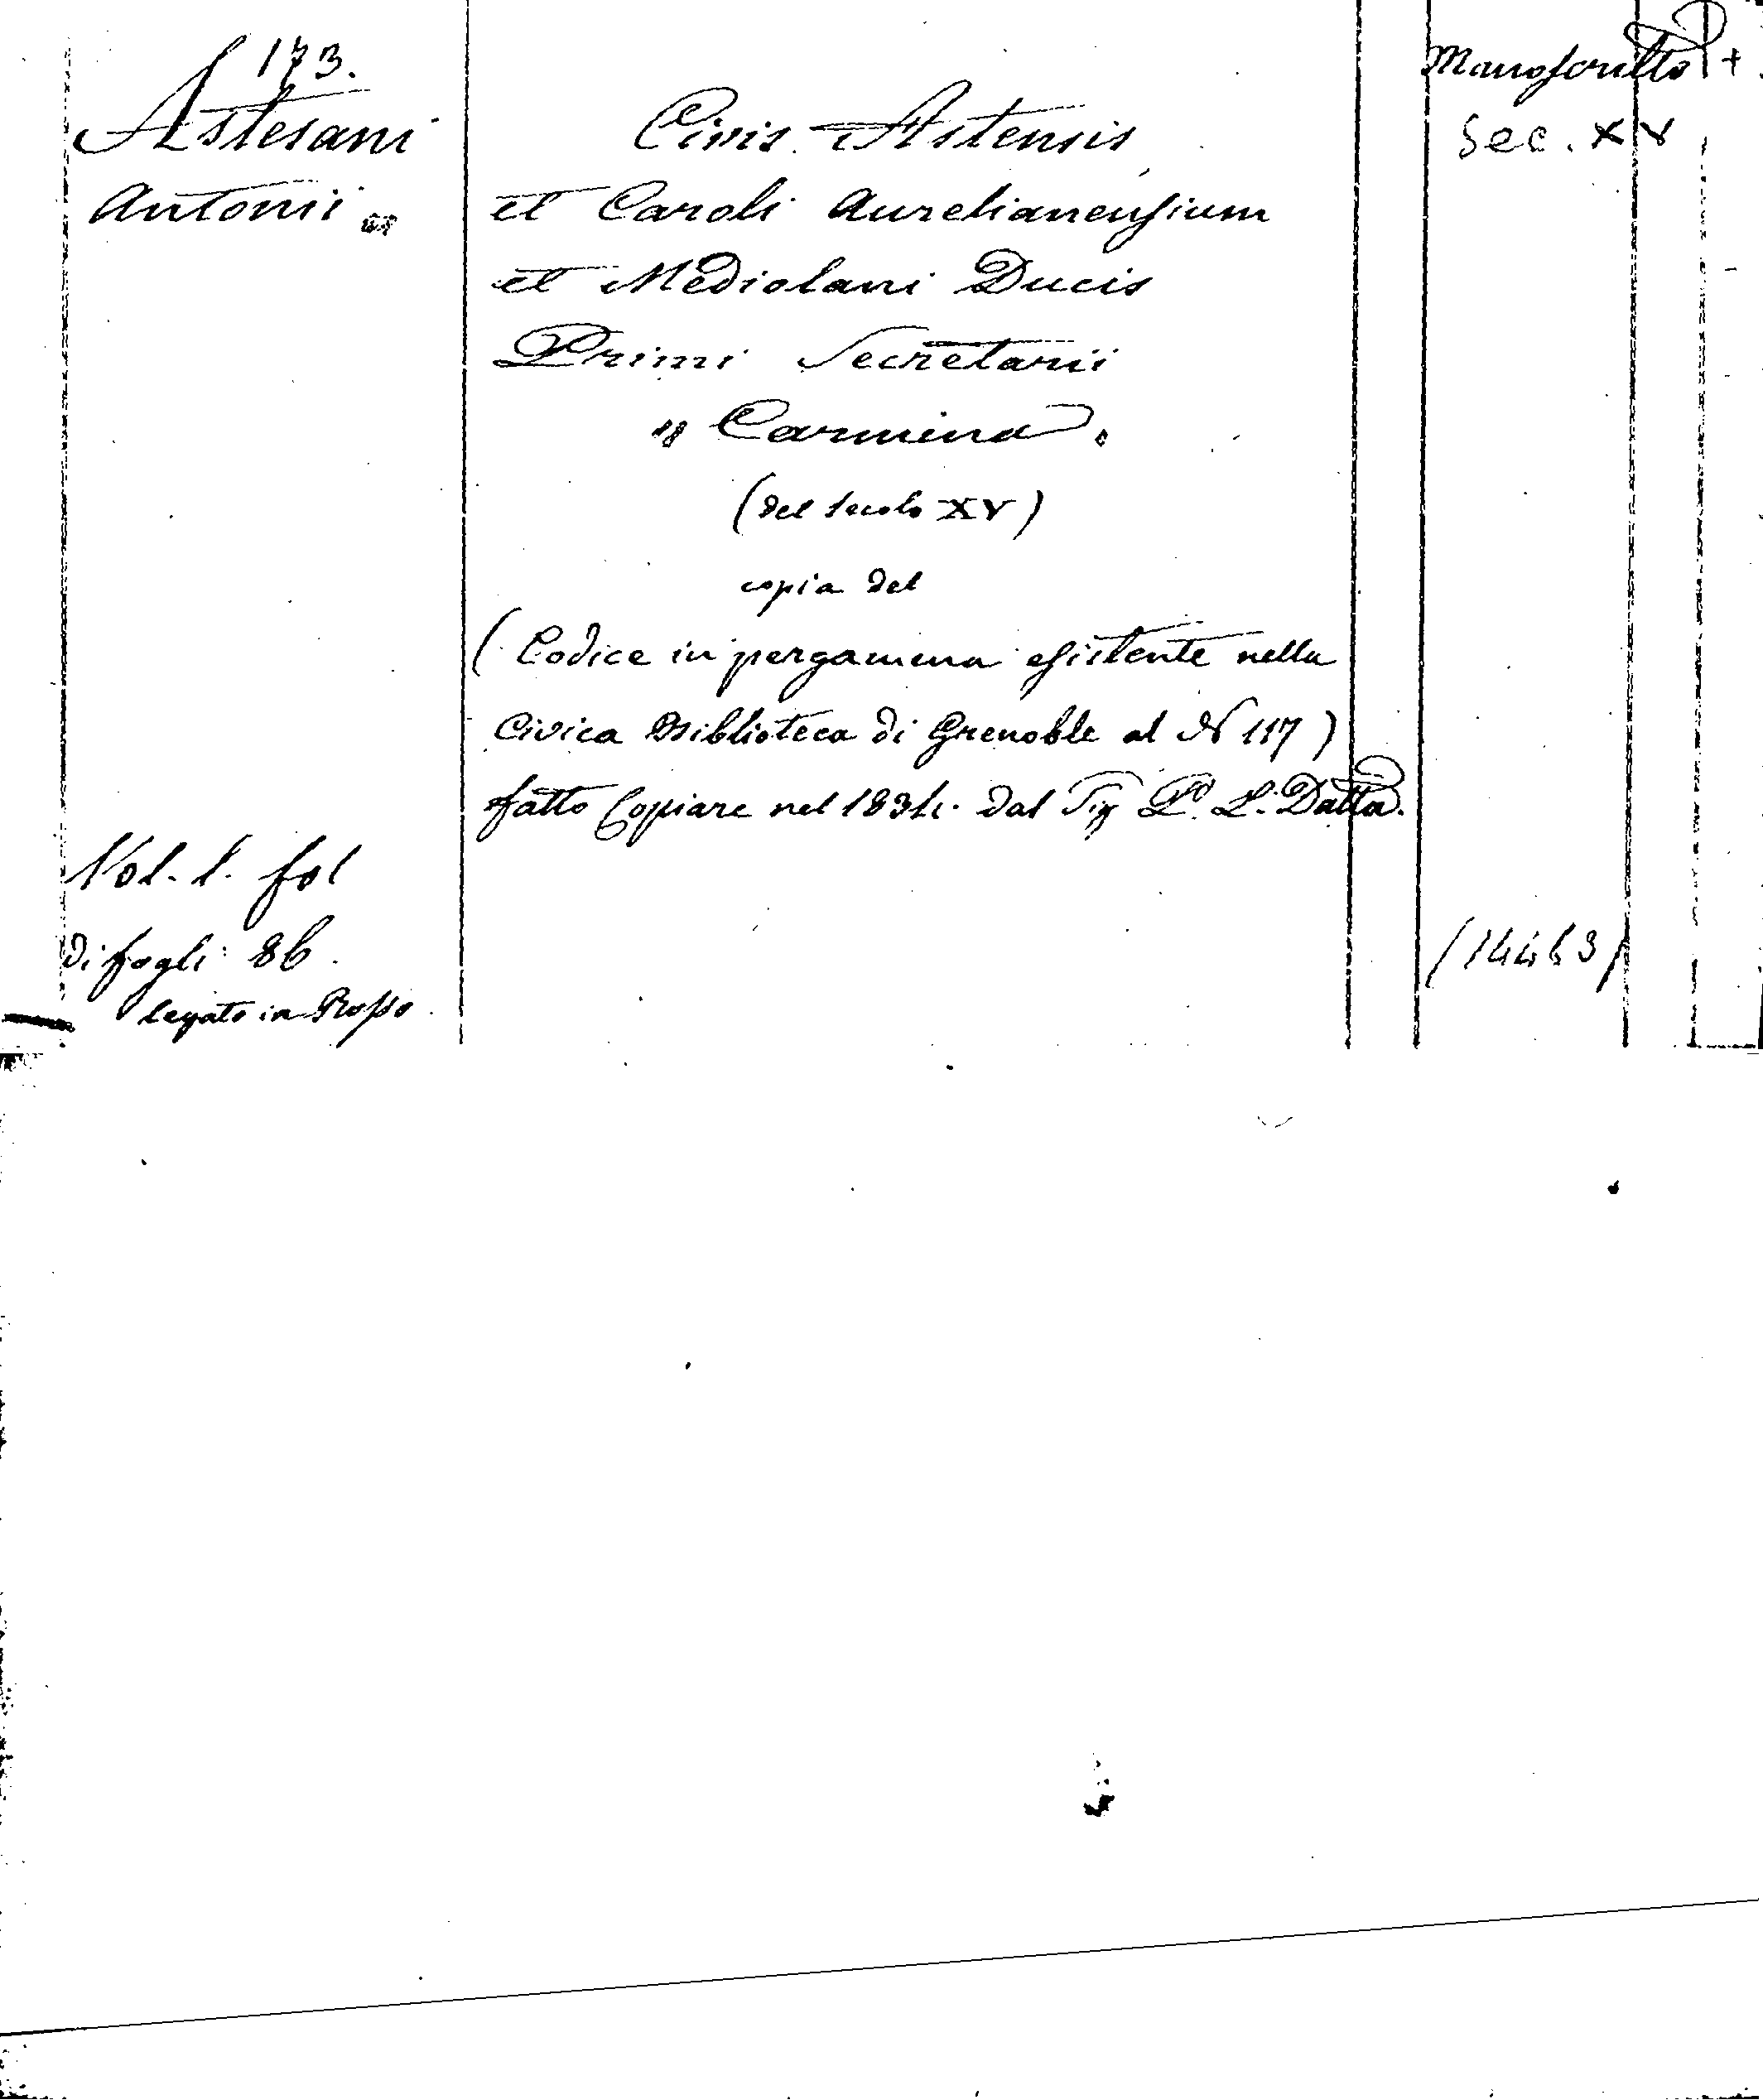 173.
Astesani
Antonii "
Civis Astensis
et Caroli Aurelianensium
et Mediolani Ducis
Primi Secretarii
" Carmina "
(del Secolo XV)
copia del
(Codice in pergamena esistente nella
Civica Biblioteca di Grenoble al N 117)
fatto Copiare nel 1834. dal Sig P. L. Datta.
Vol. 1. fol
di fogli 86.
legato in Rosso
Manoscritto +
Sec. XV